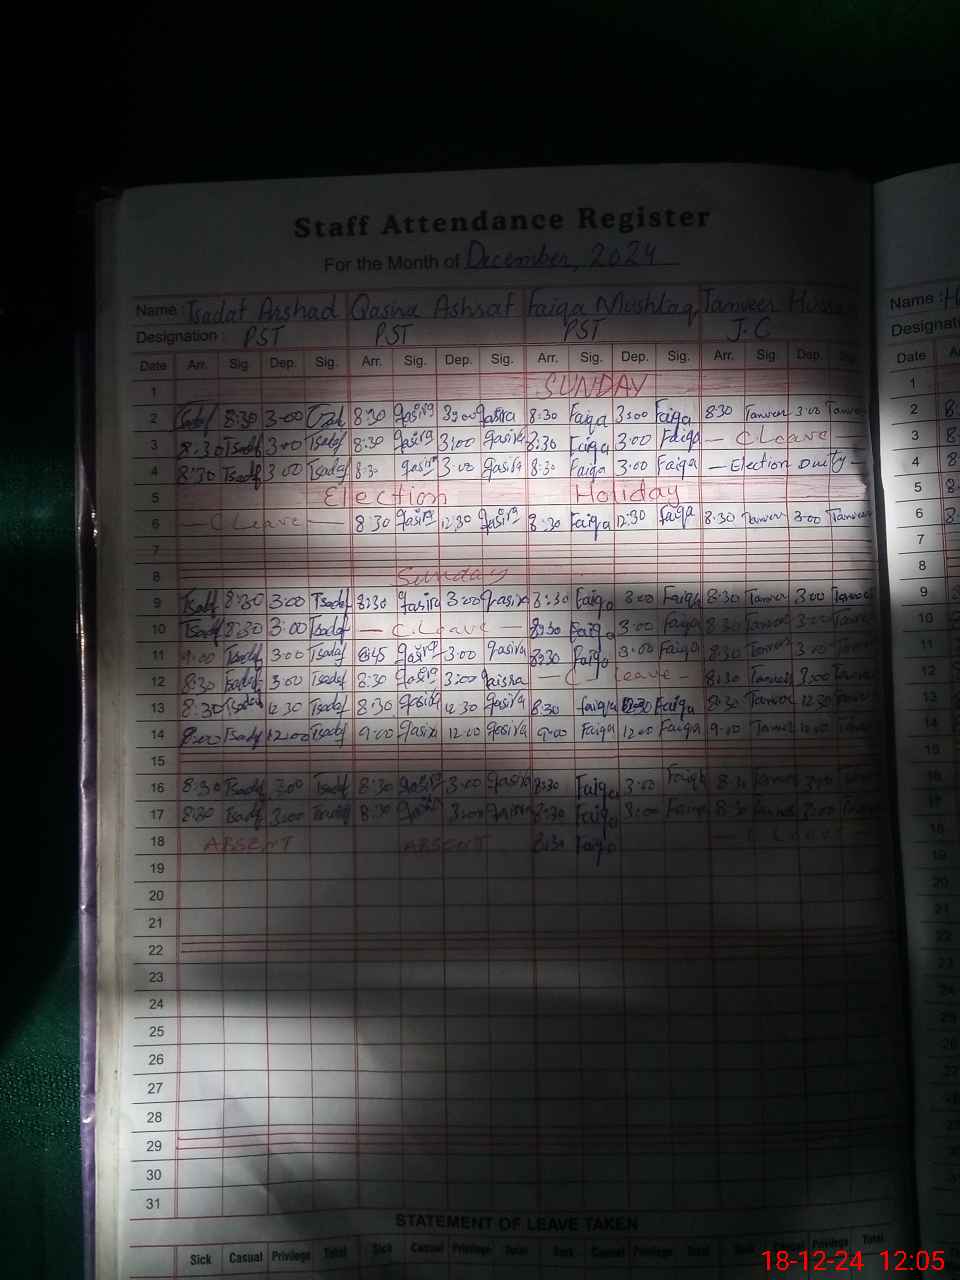 Staff Attendance Register
For the Month of December, 2024
Name : Tsadaf Arshad Qasira Ashraf Faiqa Mushtaq Tanveer Name :
Designation : PST PST PST J.C
Date Arr. Sig. Dep. Sig. Arr. Sig. Dep. Sig. Arr. Sig. Dep. Sig. Arr. Sig. Dep. Date
1 SUNDAY 1
2 8:30 3:00 8:30 Qasira 3:00 Qasira 8:30 Faiqa 3:00 Faiqa 8:30 Tanveer 3:00 2
3 8:30 Tsadaf 3:00 Tsadaf 8:30 Qasira 3:00 Qasira 8:30 Faiqa 3:00 Faiqa - C Leave - 3
4 8:30 Tsadaf 3:00 Tsadaf 8:30 Qasira 3:00 Qasira 8:30 Faiqa 3:00 Faiqa - Election Duity - 4
5 Election Holiday 5
6 - C Leave - 8:30 Qasira 12:30 Qasira 8:30 Faiqa 12:30 Faiqa 8:30 Tanveer 3:00 Tanveer 6
7 7
8 Sunday 8
9 Tsadaf 8:30 3:00 Tsadaf 8:30 Qasira 3:00 Qasira 8:30 Faiqa 3:00 Faiqa 8:30 Tanveer 3:00 9
10 Tsadaf 8:30 3:00 Tsadaf - C Leave - 8:30 Faiqa 3:00 Faiqa 8:30 Tanveer 3:00 10
11 9:00 Tsadaf 3:00 Tsadaf 8:45 Qasira 3:00 Qasira 8:30 Faiqa 3:00 Faiqa 8:30 Tanveer 3:00 11
12 8:30 Tsadaf 3:00 Tsadaf 8:30 Qasira 3:00 Qaisra - C Leave - 8:30 Tanveer 3:00 12
13 8:30 Tsadaf 12:30 Tsadaf 8:30 Qasira 12:30 Qasira 8:30 Faiqa 12:30 Faiqa 8:30 Tanveer 12:30 13
14 Tsadaf 12:00 Tsadaf 9:00 Qasira 12:00 Qasira 9:00 Faiqa 12:00 Faiqa 9:00 Tanveer 14
15 15
16 8:30 Tsadaf 3:00 Tsadaf 8:30 Qasira 3:00 Qasira 8:30 Faiqa 3:00 Faiqa 8:30 3:00 16
17 8:30 Tsadaf 3:00 8:30 Qasira 3:00 Qasira 8:30 Faiqa 3:00 Faiqa 8:30 3:00 17
18 ABSENT ABSENT 8:30 Faiqa - C Leave 18
19 19
20 20
21 21
22 22
23 23
24 24
25 25
26 26
27 27
28 28
29 29
30
31
STATEMENT OF LEAVE TAKEN
Sick Casual Privilege Total Sick Casual Privilege Total Sick Casual Privilege Total Sick Casual Privilege Total
18-12-24 12:05